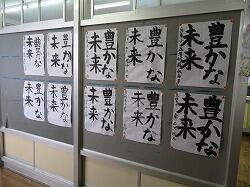 豊かな
未来
豊かな
未来
豊かな
未来
豊かな
未来
豊かな
未来
豊かな
未来
豊かな
未来
豊かな
未来
豊かな
未来
豊かな
未来